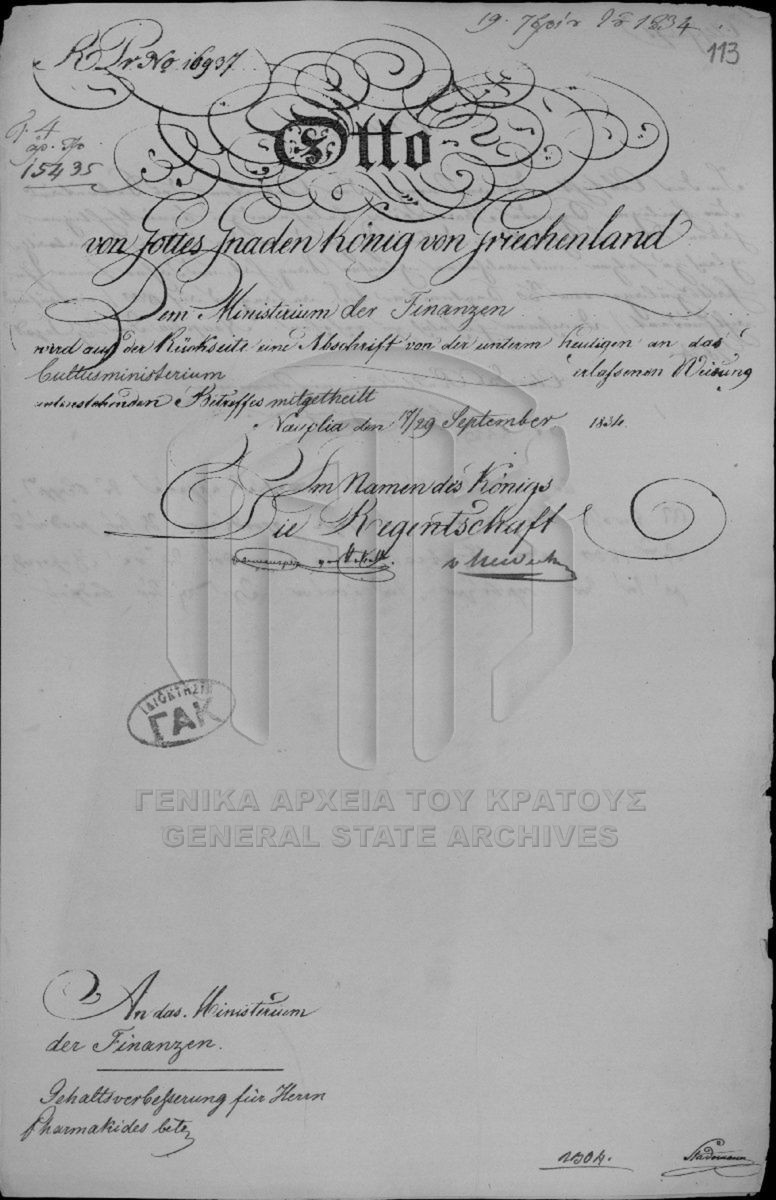 19. 7βρίου 1834
113
R Pr No 16937
15435
Otto
von Gottes Gnaden König von Griechenland
Dem Ministerium der Finanzen
wird auf der Rückseite eine Abschrift von der unterm heutigen an das
Cultusministerium erlaßenen Weisung
untenstehenden Betreffes mitgetheilt
Nauplia den 17/29 September 1834.
Im Namen des Königs
Die Regentschaft
v Heideck
ΙΔΙΟΚΤΗΣΙΑ
ΓΑΚ
ΓΕΝΙΚΑ ΑΡΧΕΙΑ ΤΟΥ ΚΡΑΤΟΥΣ
GENERAL STATE ARCHIVES
An das Ministerium
der Finanzen.
Gehaltsverbeßerung für Herrn
Pharmakides betr
Stademann